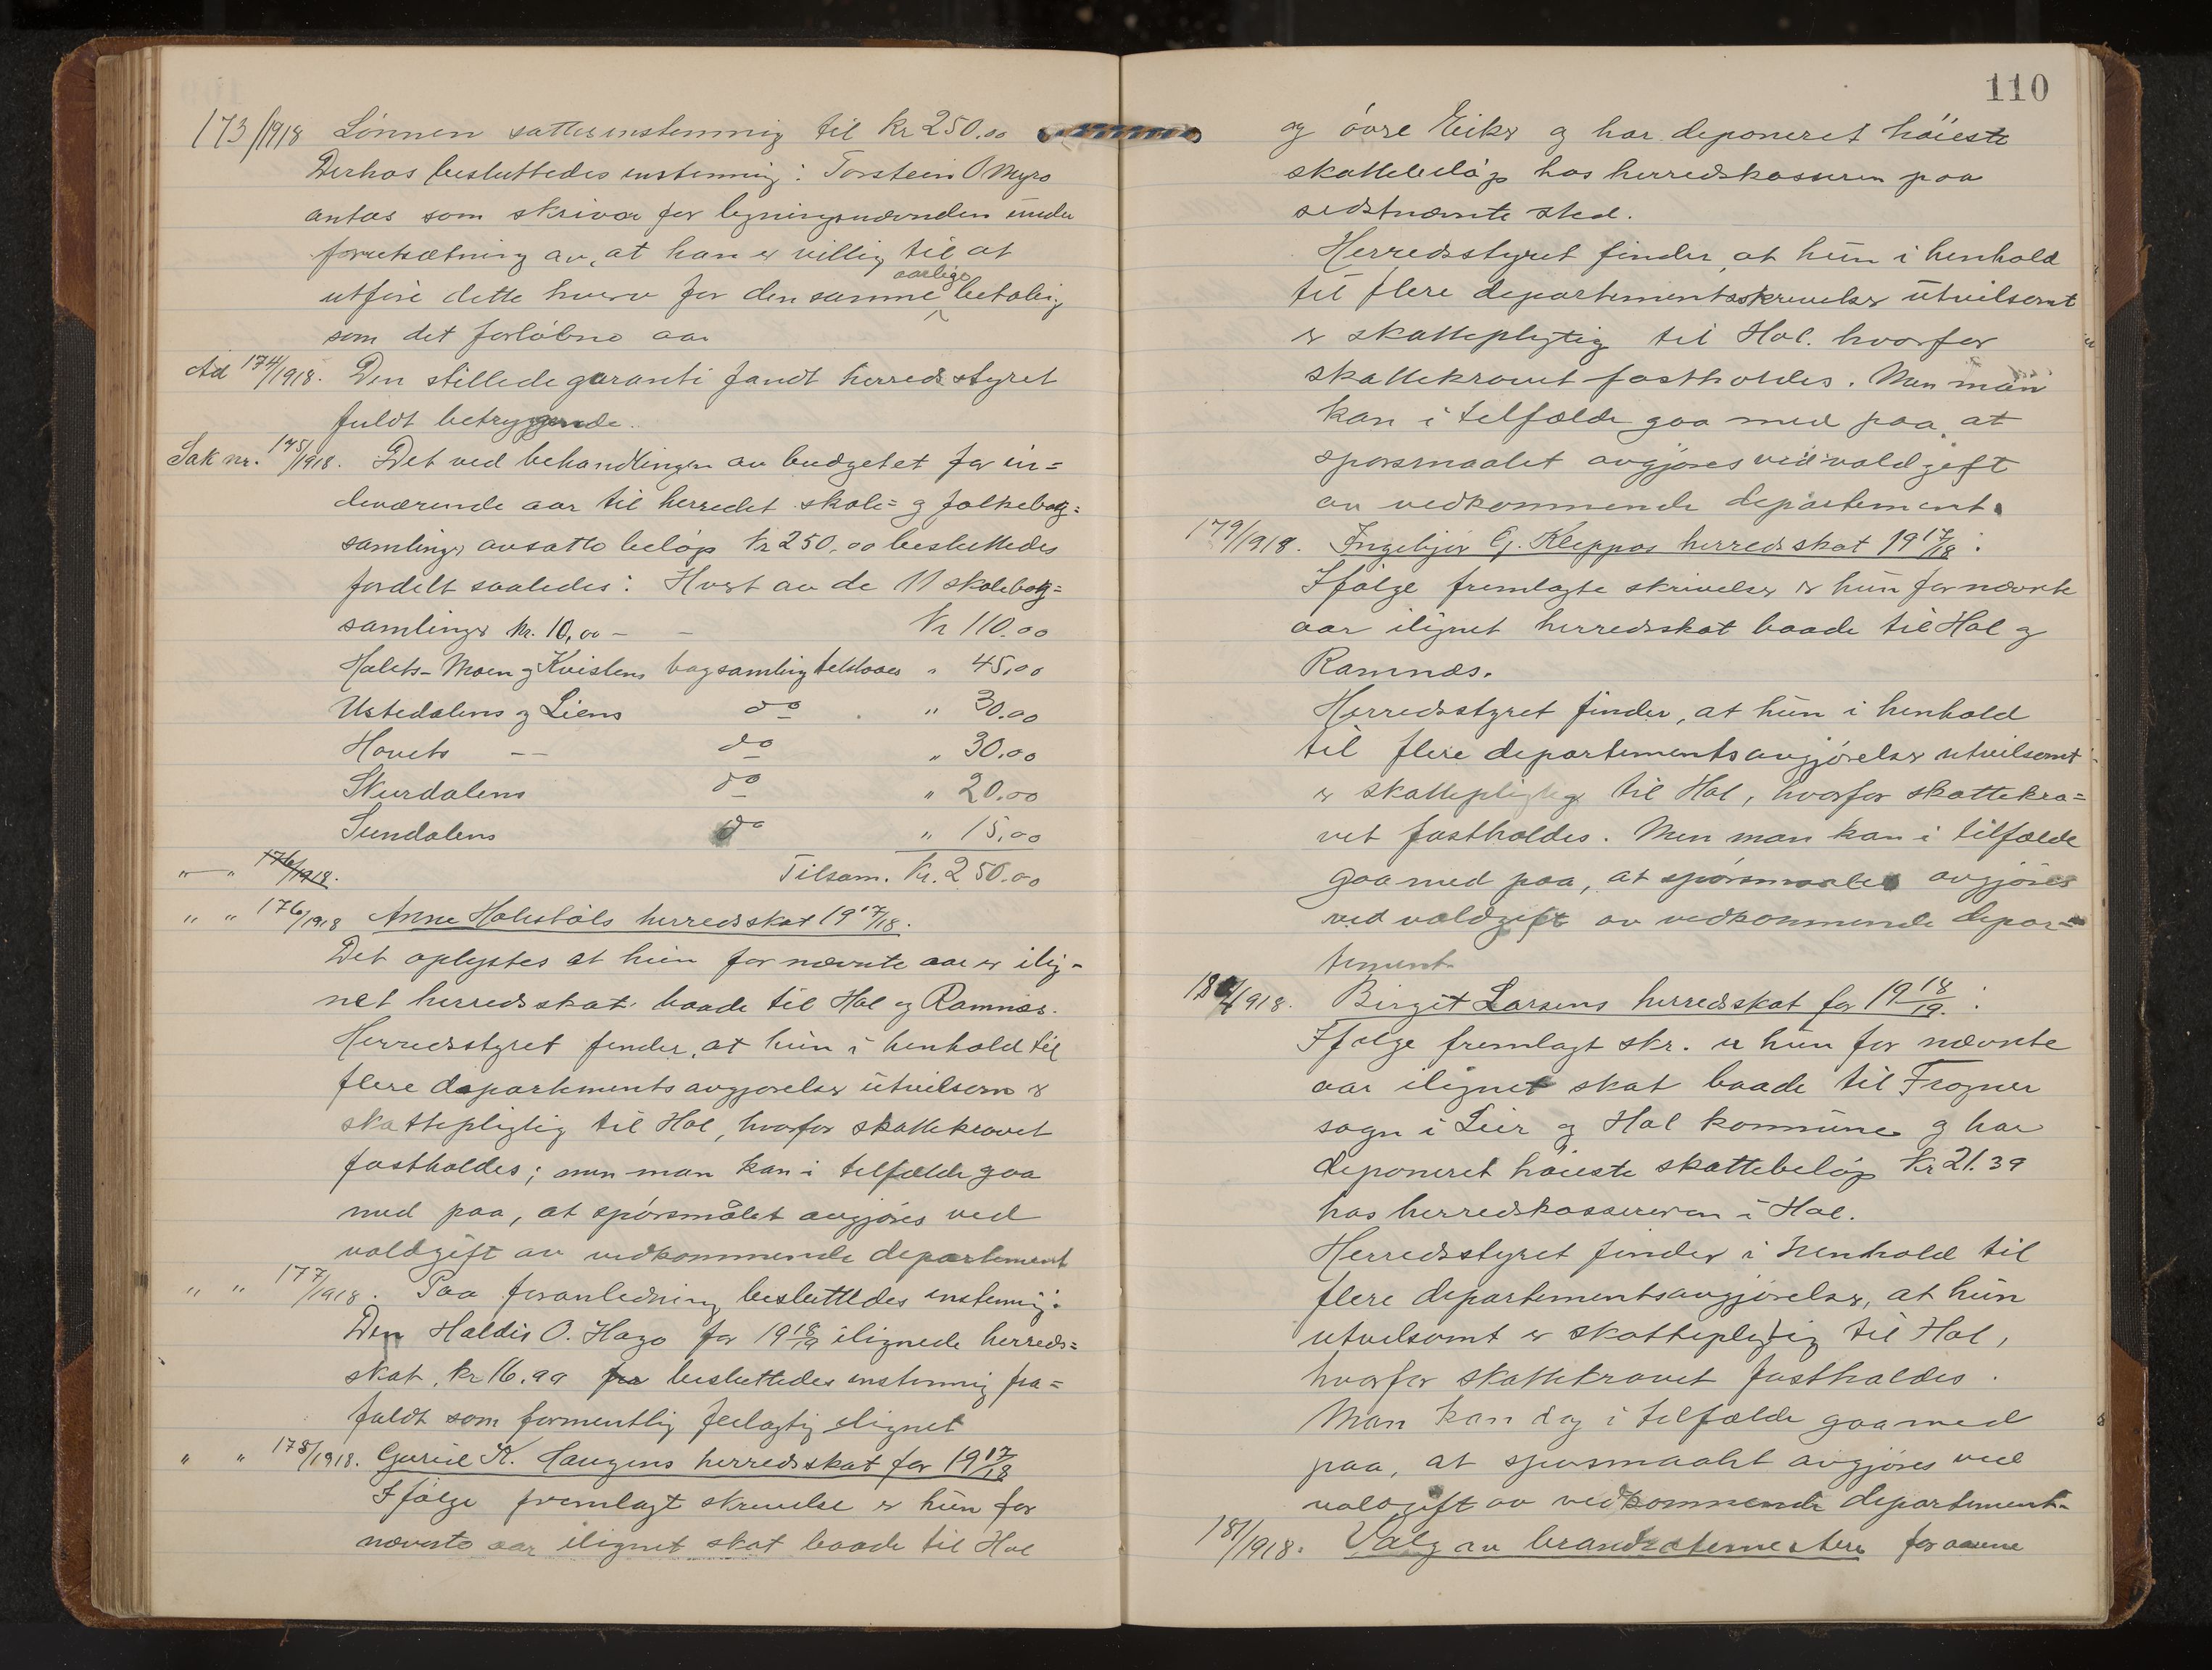 173/1918 Lönnen sattes enstemmig til Kr 250.00
Derhos besluttedes enstemmig: Torstein O Myro
antas som skriver for ligningsnævnden under
forutsætning av, at han er villig til at
utföre dette hverv for den samme aarlige betaling
som det forløbne aar
Ad 174/1918. Den stillede garanti fandt herredsstyret
fuldt betryggende.
Sak nr. 175/1918. Det ved behandlingen av budgetet for in=
deværende aar til herredet skole= og folkebog=
samlinger avsatte beløp Kr 250,00 besluttedes
fordelt saaledes: Hver av de 11 skolebog=
samlinger kr. 10,00 – – Kr 110.00
Holets- Moen og Kvislens bogsamling tilstaaes " 45,00
Ustedalens og Liens do " 30.00
Hovets –– do " 30.00
Skurdalens do " 20.00
Sundalens do " 15,00
" " 176/1918. Tilsam. Kr. 250.00
" " 176/1918 Anne Holestöls herredsskat 1917/18.
Det oplystes at hun for nævnte aar er ilig-
net herredsskat baade til Hol og Ramnæs.
Herredsstyret finder, at hun i henhold til
flere departementsavgjørelser utvilsom er
skattepligtig til Hol, hvorfor skattekravet
fastholdes; men man kan i tilfælde gaa
med paa, at spörsmålet avgjöres ved
voldgift av vedkommende departement
" " 177/1918. Paa foranledning besluttedes enstemmig:
Den Haldis O. Hago for 1918/19 ilignede herreds=
skat, kr 16.99 fra besluttedes enstemmig fra=
faldt som formentlig feilagtig ilignet
" " 178/1918. Gurie K. Haugens herredsskat for 1917/18
Ifölge fremlagt skrivelse er hun for
nævnte aar ilignet skat baade til Hol
110
og övre Eiker og har deponeret höieste
skattebelöp hos herredskassereren paa
sidstnævnte sted.
Herredsstyret finder, at hun i henhold
til flere departementsskrivelser utvilsomt
er skattepligtig til Hol. hvorfor
skattekravet fastholdes. Men man
kan i tilfælde gaa med paa, at
spørsmaalet avgjöres ved voldgift
av vedkommende departement.
179/1918. Ingebjør G. Kleppos herredsskat 1917/18:
Ifölge fremlagte skrivelser er hun for nævnte
aar ilignet herredsskat baade til Hol og
Ramnæs.
Herredsstyret finder, at hun i henhold
til flere departementsavgjörelser utvilsomt
er skattepligtig til Hol, hvorfor skattekra=
vet fastholdes. Men man kan i tilfælde
gaa med paa, at spörsmaalet avgjöres
ved voldgift av vedkommende depar=
tement.
180/1918. Birgit Larsens herredsskat for 1918/19:
Ifølge fremlagt skr. er hun for nævnte
aar ilignet skat baade til Frogner
sogn i Lier og Hol kommune og har
deponeret höieste skattebelöp Kr 21.39
hos herredskassereren i Hol.
Herredsstyret finder i henhold til
flere departementsavgjörelser, at hun
utvilsomt er skattepligtig til Hol,
hvorfor skattekravet fastholdes.
Man kan dog i tilfælde gaa med
paa, at spørsmaalet avgjöres ved
voldgift av vedkommende departement.
181/1918. Valg av for aarene